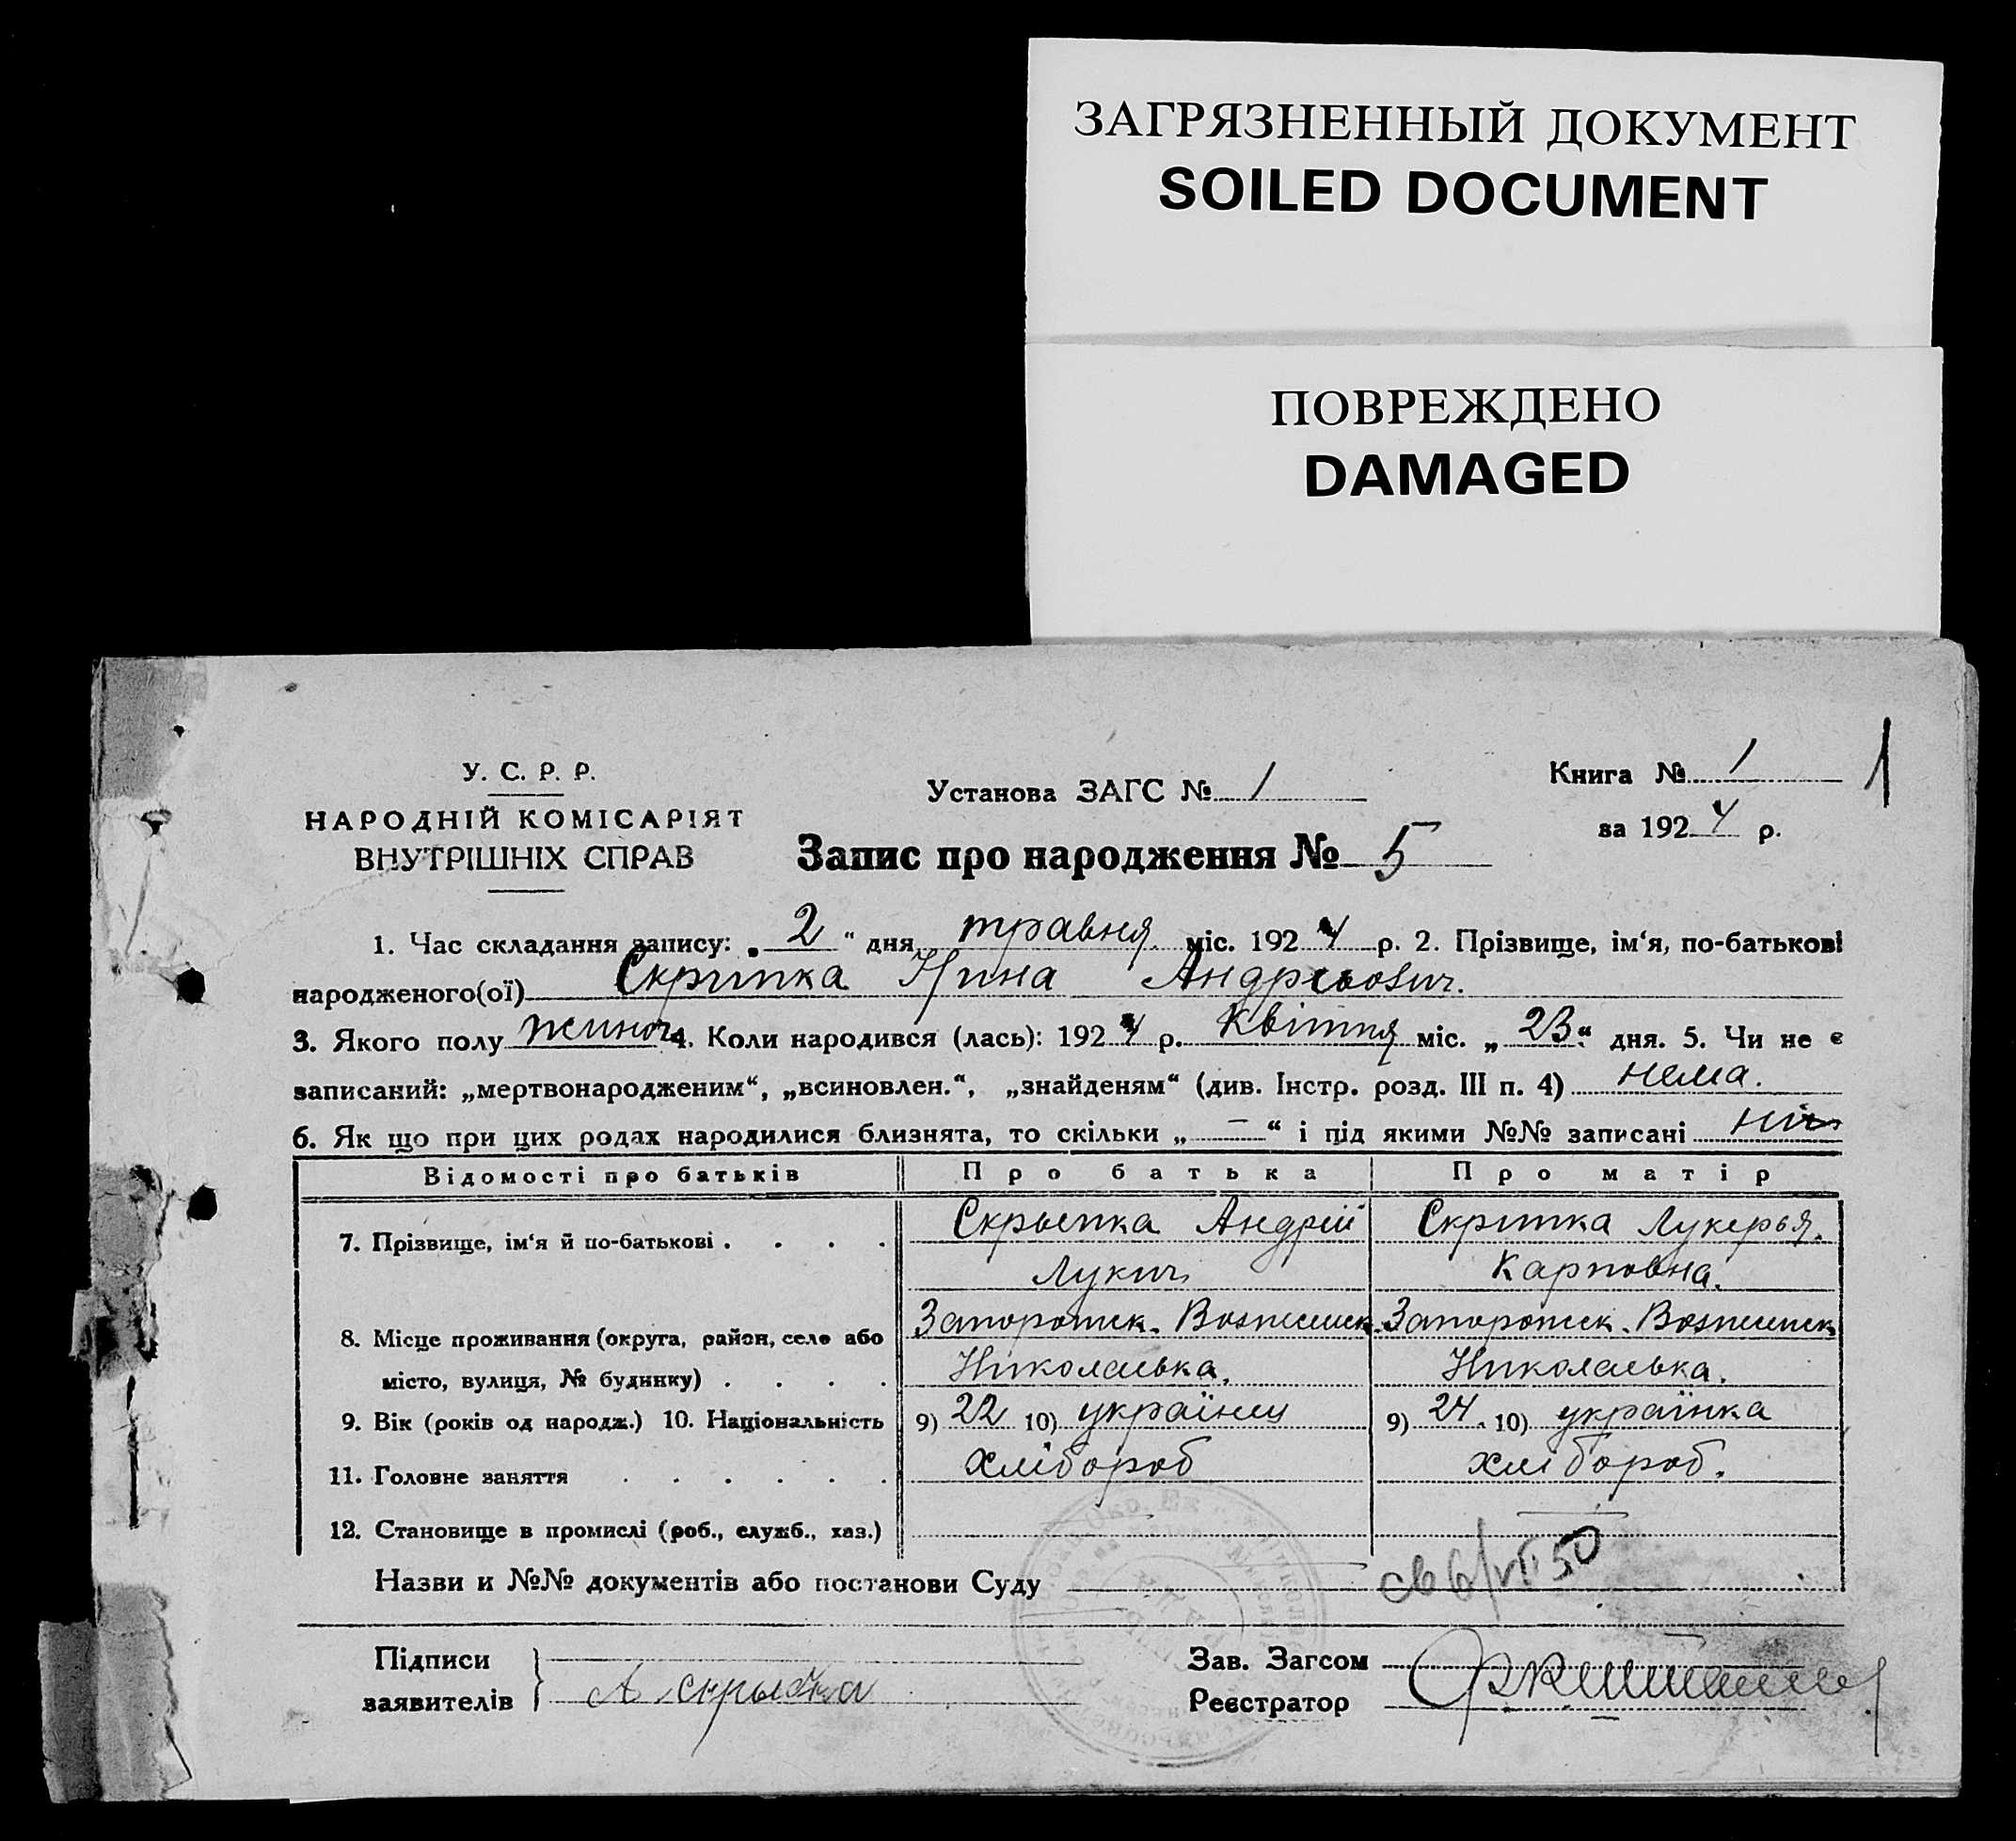 ЗАГРЯЗНЕННЫЙ ДОКУМЕНТ
SOILED DOCUMENT
ПОВРЕЖДЕНО
DAMAGED
У. С. Р. Р.
НАРОДНІЙ КОМІСАРІЯТ
ВНУТРІШНІХ СПРАВ
Установа ЗАГС № 1
Книга № 1
1
за 1924 р.
Запис про народження № 5
1. Час складання запису: „2“ дня травня міс. 1924 р. 2. Прізвище, ім‘я, по-батькові
народженого(ої) Скрипка Нина Андрієвич.
3. Якого полу жиноч. 4. Коли народився (лась): 1924 р. Квітня міс. „23“ дня. 5. Чи не є
записаний: „мертвонародженим“, „всиновлен.“, „знайденям“ (див. Інстр. розд. III п. 4) нема.
6. Як що при цих родах народилися близнята, то скільки „—“ і під якими №№ записані
Відомості про батьків Про батька Про матір
7. Прізвище, ім‘я й по-батькові . . . . Скрыпка Андрій Скрипка Лукерья.
Лукич Карповна.
8. Місце проживання (округа, район, село або Запорожск. Вознесенск. Запорожск. Вознесенск.
місто, вулиця, № будинку) . . . . Николаевка. Николаевка.
9. Вік (років од народж.) 10. Національність 9) 22 10) українец 9) 24. 10) українка
11. Головне заняття . . . . . . Хлібороб хлібороб.
12. Становище в промислі (роб., служб., хаз.)
Назви и №№ документів або постанови Суду св 6/VI 50
Підписи
заявителів А скрыпка
Зав. Загсом
Реєстратор